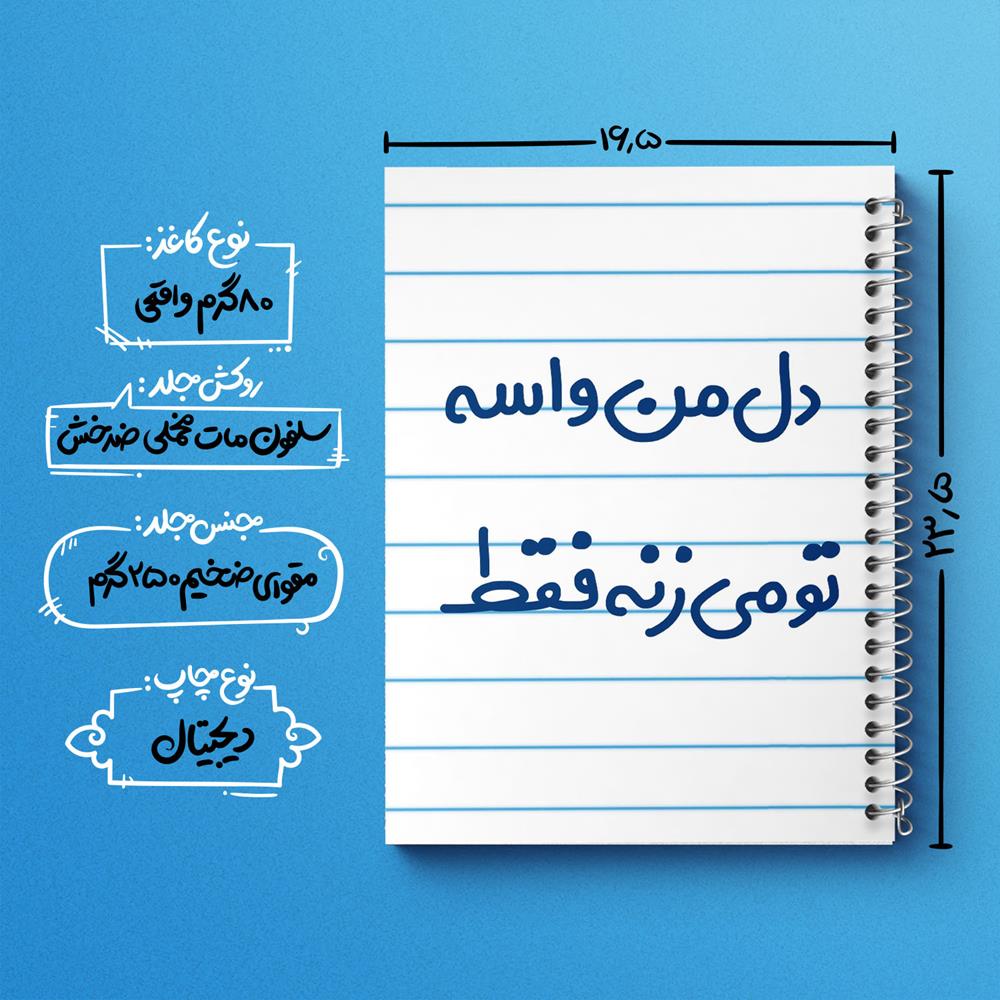 ۱۶٫۵
۲۳٫۵
دل من واسه
تو می زنه فقط
نوع کاغذ:
۸۰ گرم واقعی
روکش جلد:
سلفون مات مخملی ضدخش
جنس جلد:
مقوای ضخیم ۲۵۰ گرم
نوع چاپ:
دیجیتال